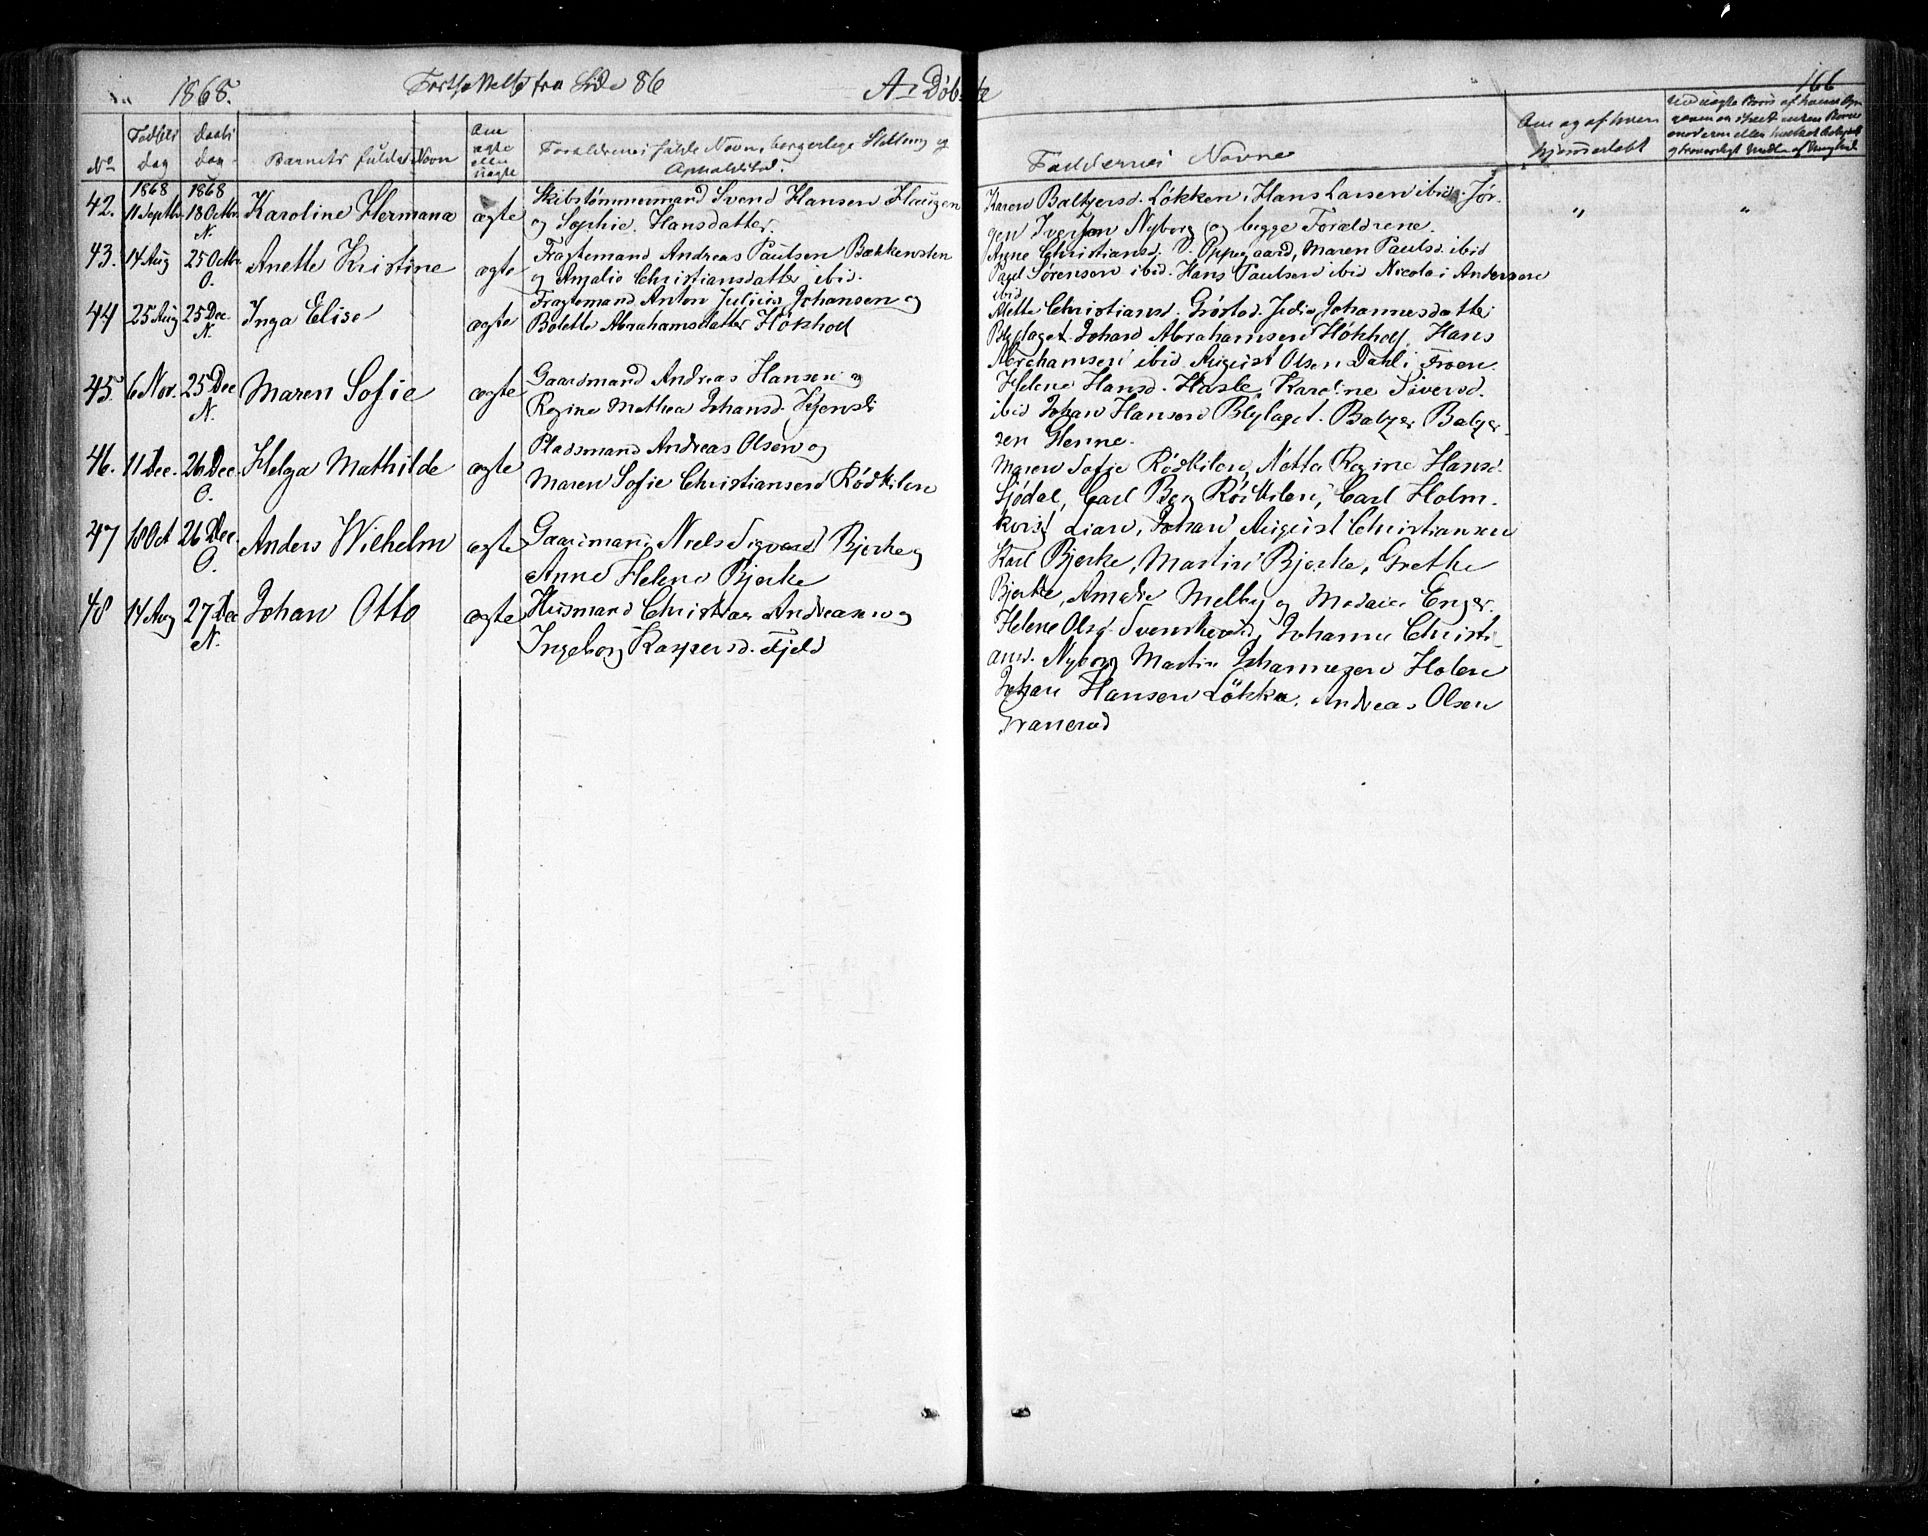 1868. Fortsættelse fra Side 86 A. Døbte 166
No Fødsels dag Daabs dag Barnets fulde Navn Om ægte eller uægte Forældrenes fulde Navn, borgerlige Stilling og Opholdsted. Faddernes Navne Om og af hvem hjemmedøbt
42. 1868 11 Septbr 1868 18 Octbr. N. Karoline Hermana ægte
Skibstømmermand Svend Hansen Haugen
og Sophie Hansdatter.
Karen Baltzersd. Løkken, Hans Larsen ibid. Jør-
gen Iversen Nyborg og begge Forældrene. " "
43. 14 Aug 25 Octbr O. Anette Kristine ægte
Fragtemand Andreas Paulsen Bækkensten
og Amalie Christiansdatter ibid.
Anne Christiansd. Oppegaard, Maren Paulsd. ibid
Paul Sørensen ibid. Hans Paulsen ibid Nicolai Andersen
ibid
44 25 Aug 25 Dec. N. Inga Elise ægte
Fragtemand Anton Julius Johansen og
Bolette Abrahamsdatter Hökhol
Alette Christiansd. Gröstad, Johannesdatter
Blylaget. Johan Abrahamsen Hökhol, Hans
Abrahamsen ibid August Olsen Dahl i Froen.
45. 6 Nov. 25 Dec N. Maren Sofie ægte
Gaardmand Andreas Hansen og
Regine Mathea Johansd.
Helene Hansd. Hasle, Karoline Siversd.
ibid Johan Hansen Blylaget. Balzer Balzer-
sen Glenne.
46. 11 Dec. 26 Dec. O. Helga Mathilde ægte
Pladsmand Andreas Olsen og
Maren Sofie Christiansen Rödkilen
Maren Sofie Rödkilen, Netta Regine Hansd.
Sjödal, Carl Berg Rödkilen, Carl Holm-
kvist Lian, Johan August Christiansen
47 18 Oct 26 Dec. O. Anders Wilhelm ægte
Gaardmand Niels Sigvard Bjerke og
Anne Helene Bjerke
Karl Bjerke, Martin Bjerke, Grethe
Bjerke, Amalie Melby og Enger.
48 14 Aug 27 Dec N. Johan Otto ægte
Husmand Christian Andreasen og
Ingeborg Kaspersd. Fjeld
Helene Olsd. Johanne Christi-
ansd. Nyborg Martin Johannesen Holen
Johan Hansen Lökka. Andreas Olsen
Granerud